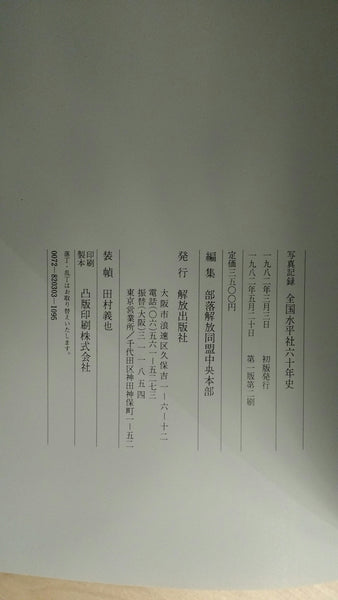 写真記録　全国水平社六十年史
一九八二年三月三日　初版発行
一九八二年五月二十日　第一版第二刷
定価三五〇〇円
編集　部落解放同盟中央本部
発行　解放出版社
大阪市浪速区久保吉一―六―十二
電話(〇六)五六一―五二七三
振替(大阪)三―一一八五四
東京営業所／千代田区神田神保町一―五二
装幀　田村義也
印刷
製本　凸版印刷株式会社
落丁・乱丁はお取り替えいたします。
0072－820303－1095